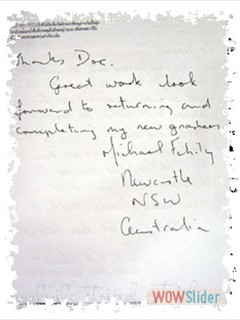 Thanks Doc.
Great work look
forward to returning and
completing my new gnashers
Michael
Newcastle
NSW
Australia
WOWSlider